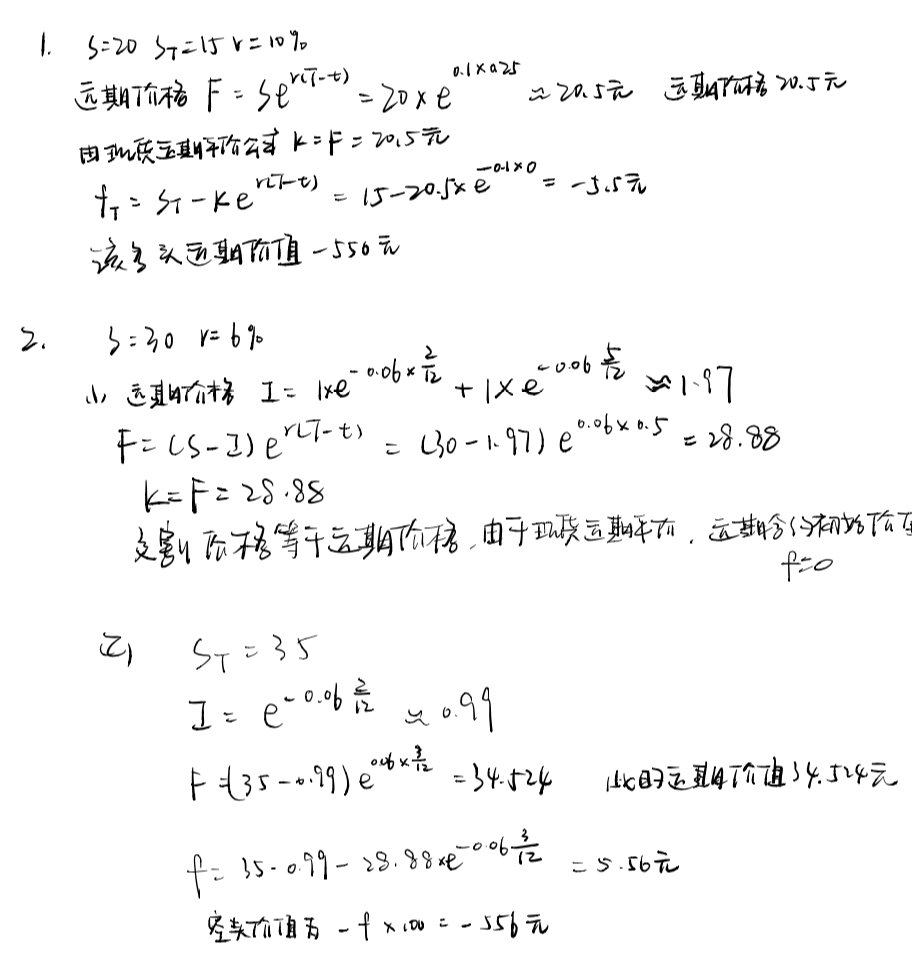 1. S=20 S_T=15 r=10%
远期价格 F = Se^{r(T-t)} = 20×e^{0.1×0.25} ≈ 20.5元 远期价格20.5元
由现货远期平价公式 K=F=20.5元
f_T = S_T - Ke^{r(T-t)} = 15-20.5×e^{-0.1×0} = -5.5元
该多头远期价值 -550元
2. S=30 r=6%
(1) 远期价格 I = 1×e^{-0.06×2/12} + 1×e^{-0.06 5/12} ≈ 1.97
F=(S-I)e^{r(T-t)} = (30-1.97)e^{0.06×0.5} = 28.88
K=F=28.88
交割价格等于远期价格,由于现货远期平价,远期合约初始价值
f=0
(2) S_T=35
I = e^{-0.06 2/12} ≈ 0.99
F=(35-0.99)e^{0.06×3/12} = 34.524 此时远期价值34.524元
f = 35-0.99-28.88×e^{-0.06 3/12} = 5.56元
空头价值为 -f×100 = -556元